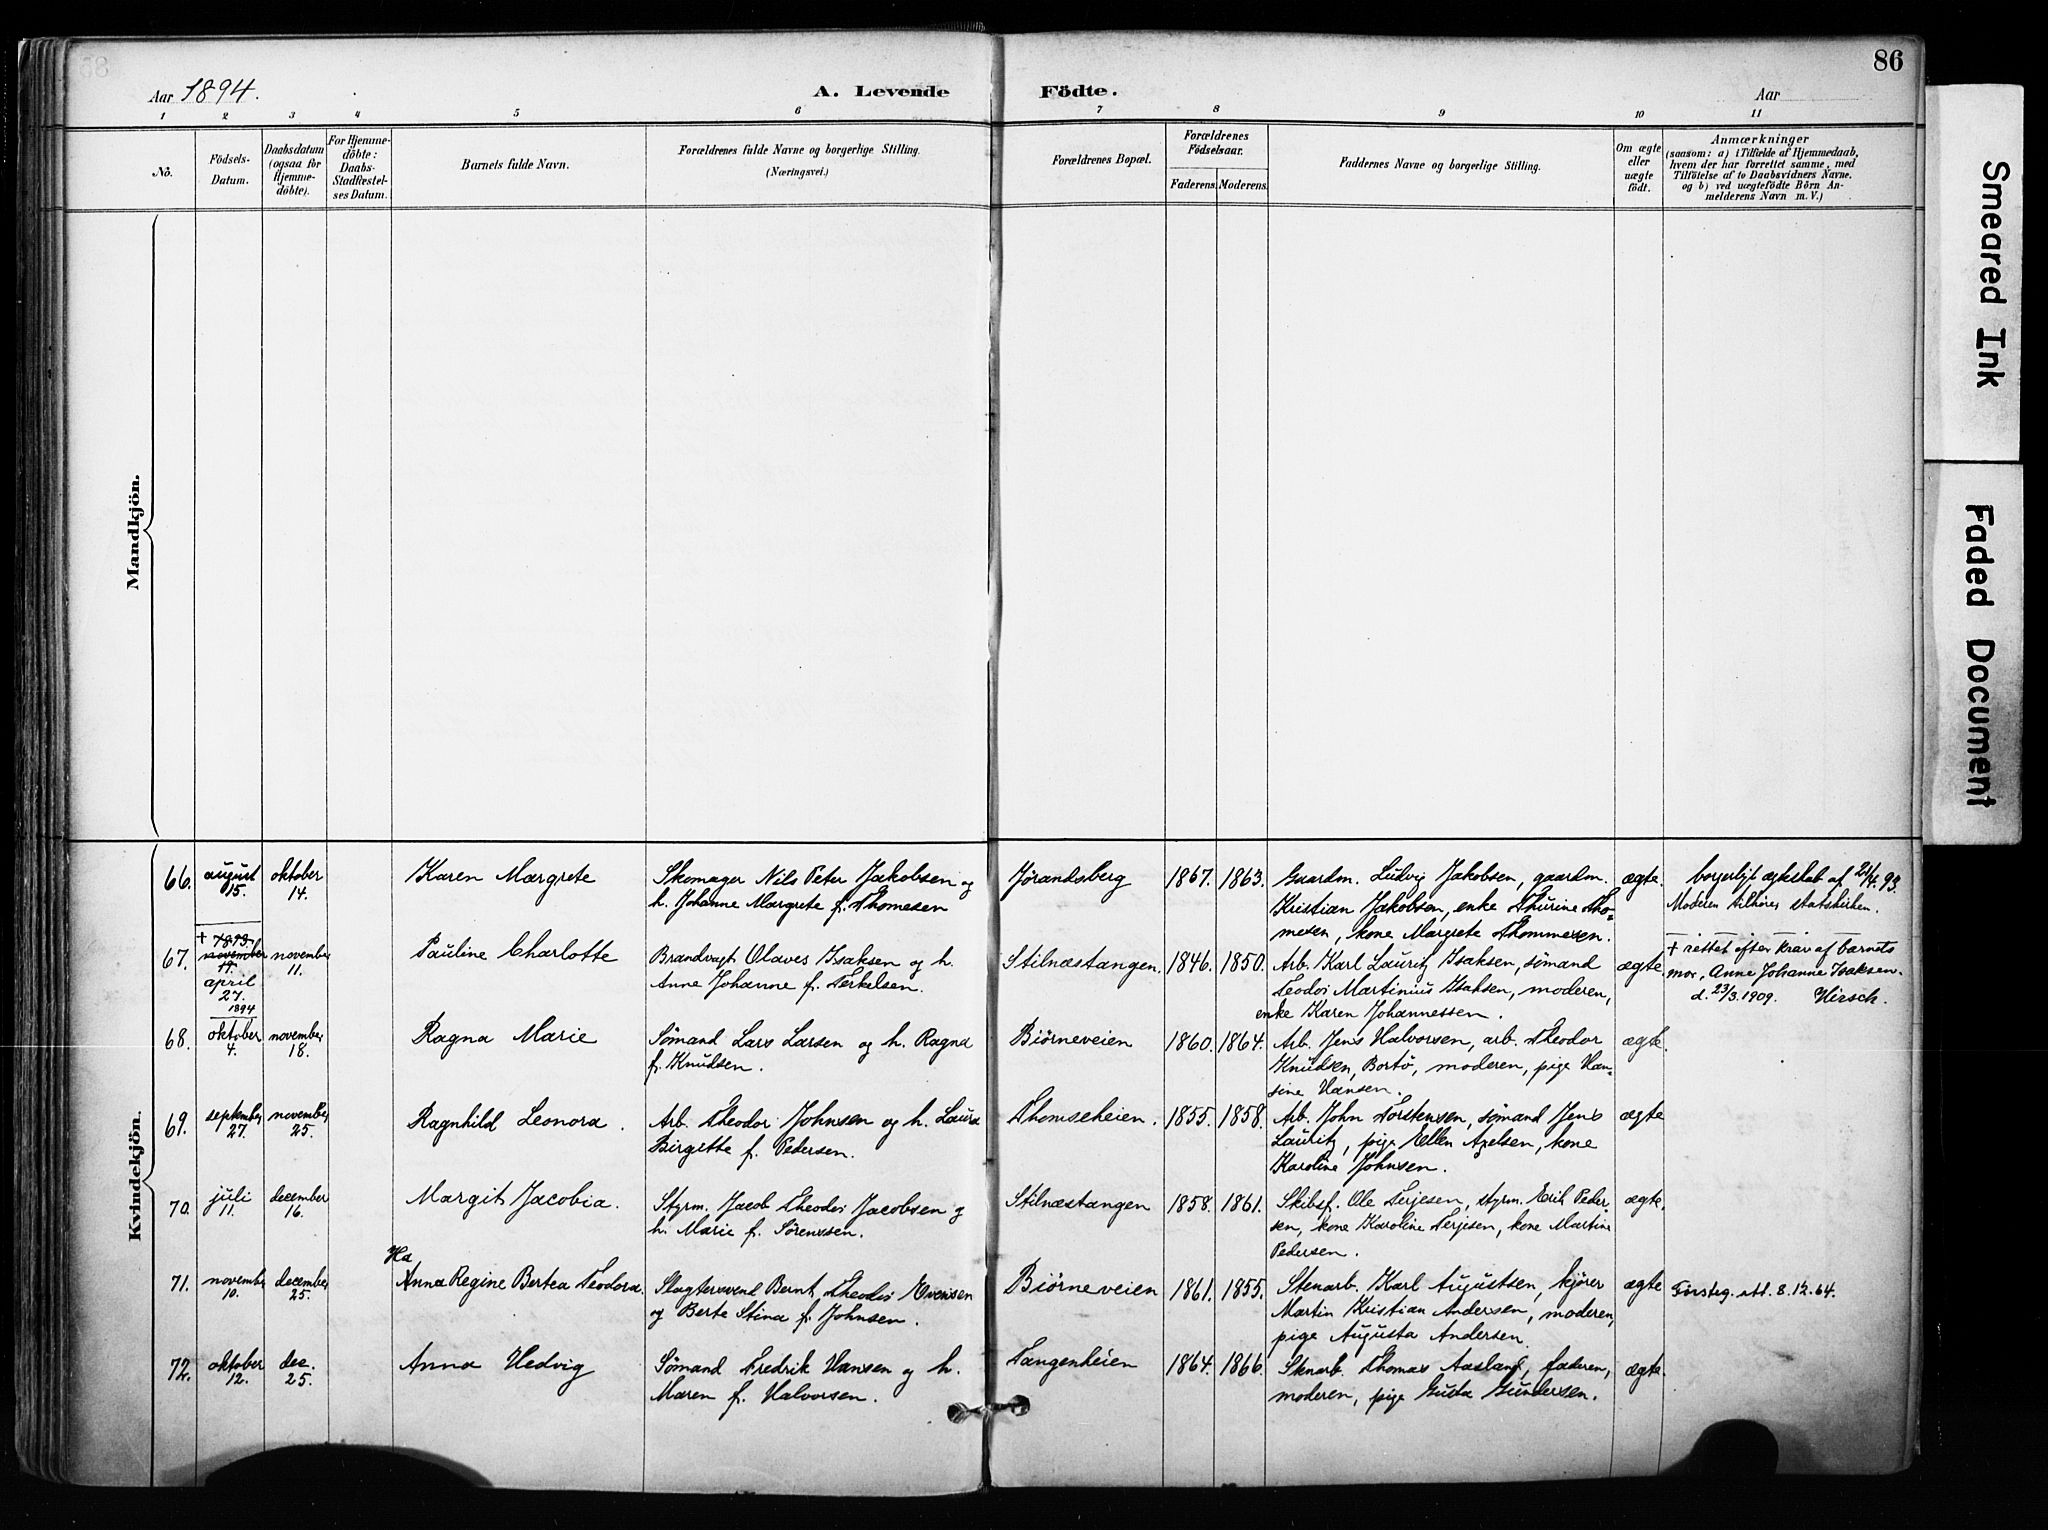 86
Aar 1894.
A. Levende Födte.
Aar
1 2 3 4 5 6 7 8 9 10 11
No.
Födsels-
Datum.
Daabsdatum
(ogsaa for
Hjemme-
döbte).
For Hjemme-
döbte:
Daabs-
Stadfæstel-
ses Datum.
Barnets fulde Navn.
Forældrenes fulde Navne og borgerlige Stilling.
(Næringsvei.)
Forældrenes Bopæl.
Forældrenes
Födselsaar.
Faderens. Moderens.
Faddernes Navne og borgerlige Stilling.
Om ægte
eller
uægte
födt.
Anmærkninger
(saasom: a) i Tilfælde af Hjemmedaab,
hvem der har forrettet samme, med
Tilföielse af to Daabsvidners Navne,
og b) ved uægtefödte Börn An-
melderens Navn m. V.)
Mandkjön.
Kvindekjön.
66.
august
15.
oktober
14.
Karen Margrete
Skomager Nils Peter Jakobsen og
h. Johanne Margrete f. Thomesen
Jørandsberg
1867. 1863.
Gaardm. Ludvig Jakobsen, gaardm.
Kristian Jakobsen, enke Thurine Tho-
mesen, kone Margrete Thommesen.
ægte.
borgerligt ægteskab af 21/4 93.
Moderen tilhører statskirken.
67.
+ 1893.
november
17.
april
27.
1894
november
11.
Pauline Charlotte
Brandvagt Olaves Isaksen og h.
Anne Johanne f. Terkelsen.
Stilnæstangen.
1846. 1850.
Arb. Karl Lauritz Isaksen, sømand
Teodor Martinius Isaksen, moderen,
enke Karen Johannessen.
ægte
+ rettet efter krav af barnets
mor, Anne Johanne Isaksen.
d. 23/3.1909. Hirsch.
68.
oktober
4.
november
18.
Ragna Marie
Sømand Lars Larsen og h. Ragna
f. Knudsen.
Biørneveien
1860. 1864.
Arb. Jens Halvorsen, arb. Theodor
Knudsen, Bortø, moderen, pige Han-
sine Hansen.
ægte.
69.
september
27.
november
25.
Ragnhild Leonora.
Arb. Theodor Johnsen og h. Laura
Birgitte f. Pedersen.
Thomseheien.
1855. 1858.
Arb. John Torstensen, sømand Jens
Lauritz, pige Ellen Axelsen, kone
Karoline Johnsen.
ægte
70.
juli
11.
december
16.
Margit Jacobia.
Styrm. Jacob Theodor Jacobsen og
h. Marie f. Sørenssen.
Stilnæstangen
1858. 1861.
Skibsf. Ole Terjesen, styrm. Erik Peder-
sen, kone Karoline Terjesen, kone Martine
Pedersen.
ægte.
71.
november
10.
december
25.
Ha
Anna Regine Bertea Teodora.
Slagtersvend Bernt Theodor Evensen
og Berte Stina f. Johnsen.
Biørneveien
1861. 1855.
Stenarb. Karl Augustsen, kjører
Martin Kristian Andersen, moderen,
pige Augusta Andersen
ægte
Førsteg. att. 8.12.64.
72.
oktober
12.
dec.
25.
Anna Hedvig
Sømand Fredrik Hansen og h.
Maren f. Halvorsen.
Tangenheien
1864. 1866.
Stenarb. Thomas Aasland, faderen,
moderen, pige Gusta Gundersen.
ægte.
Smeared Ink
Faded Document